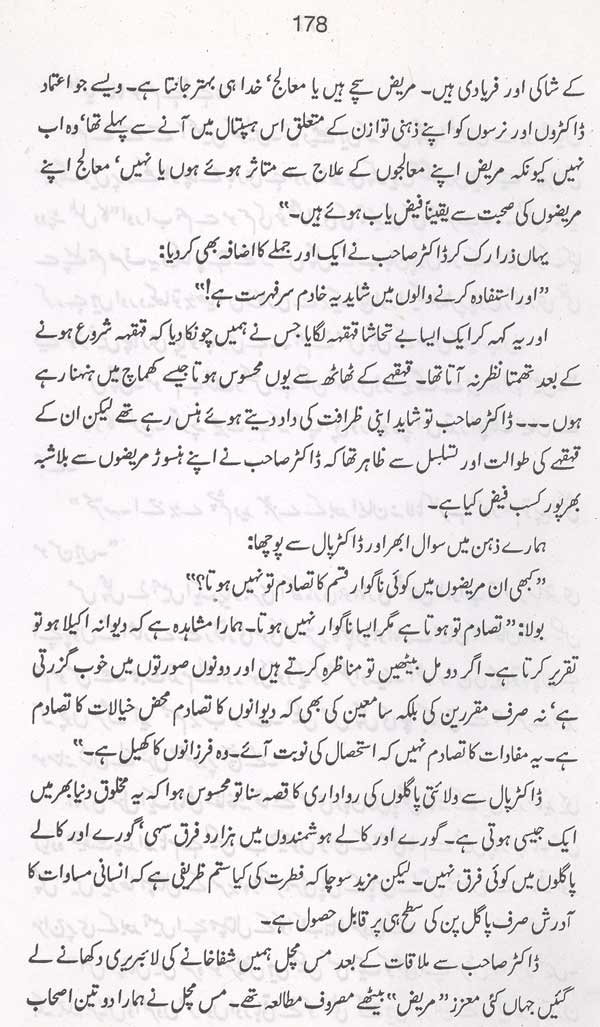 178
کے شاکی اور فریادی ہیں۔ مریض سچے ہیں یا معالج‘ خدا ہی بہتر جانتا ہے۔ ویسے جو اعتماد
ڈاکٹروں اور نرسوں کو اپنے ذہنی توازن کے متعلق اس ہسپتال میں آنے سے پہلے تھا‘ وہ اب
نہیں کیونکہ مریض اپنے معالجوں کے علاج سے متاثر ہوئے ہوں یا نہیں‘ معالج اپنے
مریضوں کی صحبت سے یقیناً فیض یاب ہوئے ہیں۔“
یہاں ذرا رک کر ڈاکٹر صاحب نے ایک اور جملے کا اضافہ بھی کر دیا:
”اور استفادہ کرنے والوں میں شاید یہ خادم سرفہرست ہے!“
اور یہ کہہ کر ایک ایسا بے تحاشا قہقہہ لگایا جس نے ہمیں چونکا دیا کہ قہقہہ شروع ہونے
کے بعد تھمتا نظر نہ آتا تھا۔ قہقہے کے ٹھاٹھ سے یوں محسوس ہوتا جیسے کھماچ میں ہنہنا رہے
ہوں ۔۔۔ ڈاکٹر صاحب تو شاید اپنی ظرافت کی داد دیتے ہوئے ہنس رہے تھے لیکن ان کے
قہقہے کی طوالت اور تسلسل سے ظاہر تھا کہ ڈاکٹر صاحب نے اپنے ہنسوڑ مریضوں سے بلاشبہ
بھرپور کسب فیض کیا ہے۔
ہمارے ذہن میں سوال ابھرا اور ڈاکٹر پال سے پوچھا:
”کبھی ان مریضوں میں کوئی ناگوار قسم کا تصادم تو نہیں ہوتا؟“
بولا: ”تصادم تو ہوتا ہے مگر ایسا ناگوار نہیں ہوتا۔ ہمارا مشاہدہ ہے کہ دیوانہ اکیلا ہو تو
تقریر کرتا ہے۔ اگر دو مل بیٹھیں تو مناظرہ کرتے ہیں اور دونوں صورتوں میں خوب گزرتی
ہے‘ نہ صرف مقررین کی بلکہ سامعین کی بھی کہ دیوانوں کا تصادم محض خیالات کا تصادم
ہے۔ یہ مفادات کا تصادم نہیں کہ استحصال کی نوبت آئے۔ وہ فرزانوں کا کھیل ہے۔“
ڈاکٹر پال سے ولائتی پاگلوں کی رواداری کا قصہ سنا تو محسوس ہوا کہ یہ مخلوق دنیا بھر میں
ایک جیسی ہوتی ہے۔ گورے اور کالے ہوشمندوں میں ہزار دو فرق سہی‘ گورے اور کالے
پاگلوں میں کوئی فرق نہیں۔ لیکن مزید سوچا کہ فطرت کی کیا ستم ظریفی ہے کہ انسانی مساوات کا
آدرش صرف پاگل پن کی سطح ہی پر قابل حصول ہے۔
ڈاکٹر صاحب سے ملاقات کے بعد مس مچل ہمیں شفاخانے کی لائبریری دکھانے لے
گئیں جہاں کئی معزز ”مریض“ بیٹھے مصروف مطالعہ تھے۔ مس مچل نے ہمارا دو تین اصحاب